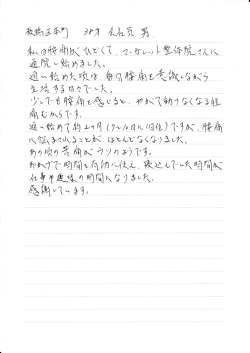 板橋区本町 38才 会社員 男
私は腰痛がひどくて、マーガレット整体院さんに
通院し始めました。
通い始めた頃は、毎日腰痛を意識しながら
生活する日々でした。
少しでも腰痛を感じると、やがて動けなくなる程
痛むからです。
通い始めて約2ヶ月(7〜10日に1回位)ですが、腰痛
に悩まされることがほとんどなくなりました。
あの頃の苦痛がウソのようです。
おかげで時間を有効に使え、寝込んでいた時間が
仕事や趣味の時間になりました。
感謝しています。